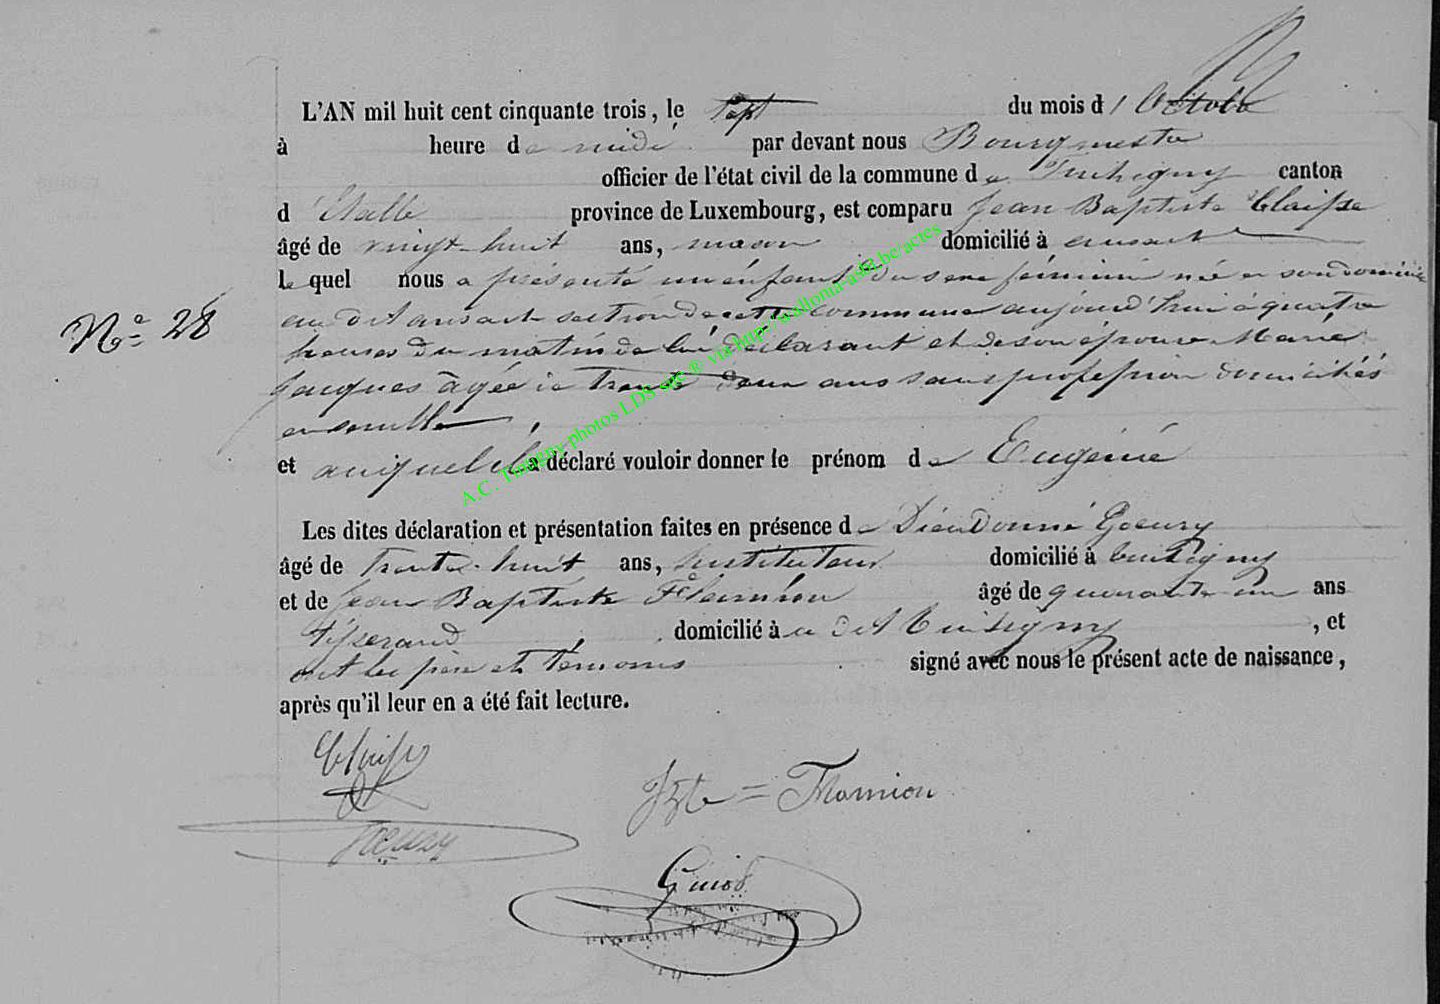 L'AN mil huit cent cinquante trois, le Sept du mois d'Octobre
à heure de midi par devant nous Bourgmestre
officier de l'état civil de la commune de Tintigny canton
d'Etalle province de Luxembourg, est comparu Jean Baptiste Claisse
âgé de vingt huit ans, maçon domicilié à ansart
lequel nous a présenté un enfant du sexe féminin né en son domicile
au dit ansart section de cette commune aujourd'hui à quatre
heures du matin de lui déclarant et de son épouse Marie
Jacques âgée de trente deux ans sans profession domiciliés
ensemble,
et auquel il a déclaré vouloir donner le prénom de Eugénie
Les dites déclaration et présentation faites en présence de Dieudonné Goeury
âgé de trente-huit ans, instituteur domicilié à tintigny
et de Jean Baptiste âgé de quarante un ans
tisserand, domicilié à au dit tintigny, et
ont les père et témoins signé avec nous le présent acte de naissance,
après qu'il leur en a été fait lecture.
N° 28
Claisse
Goeury
A.C. Tintigny photos LDS sdc ® via http://wallonia-asbl.be/actes